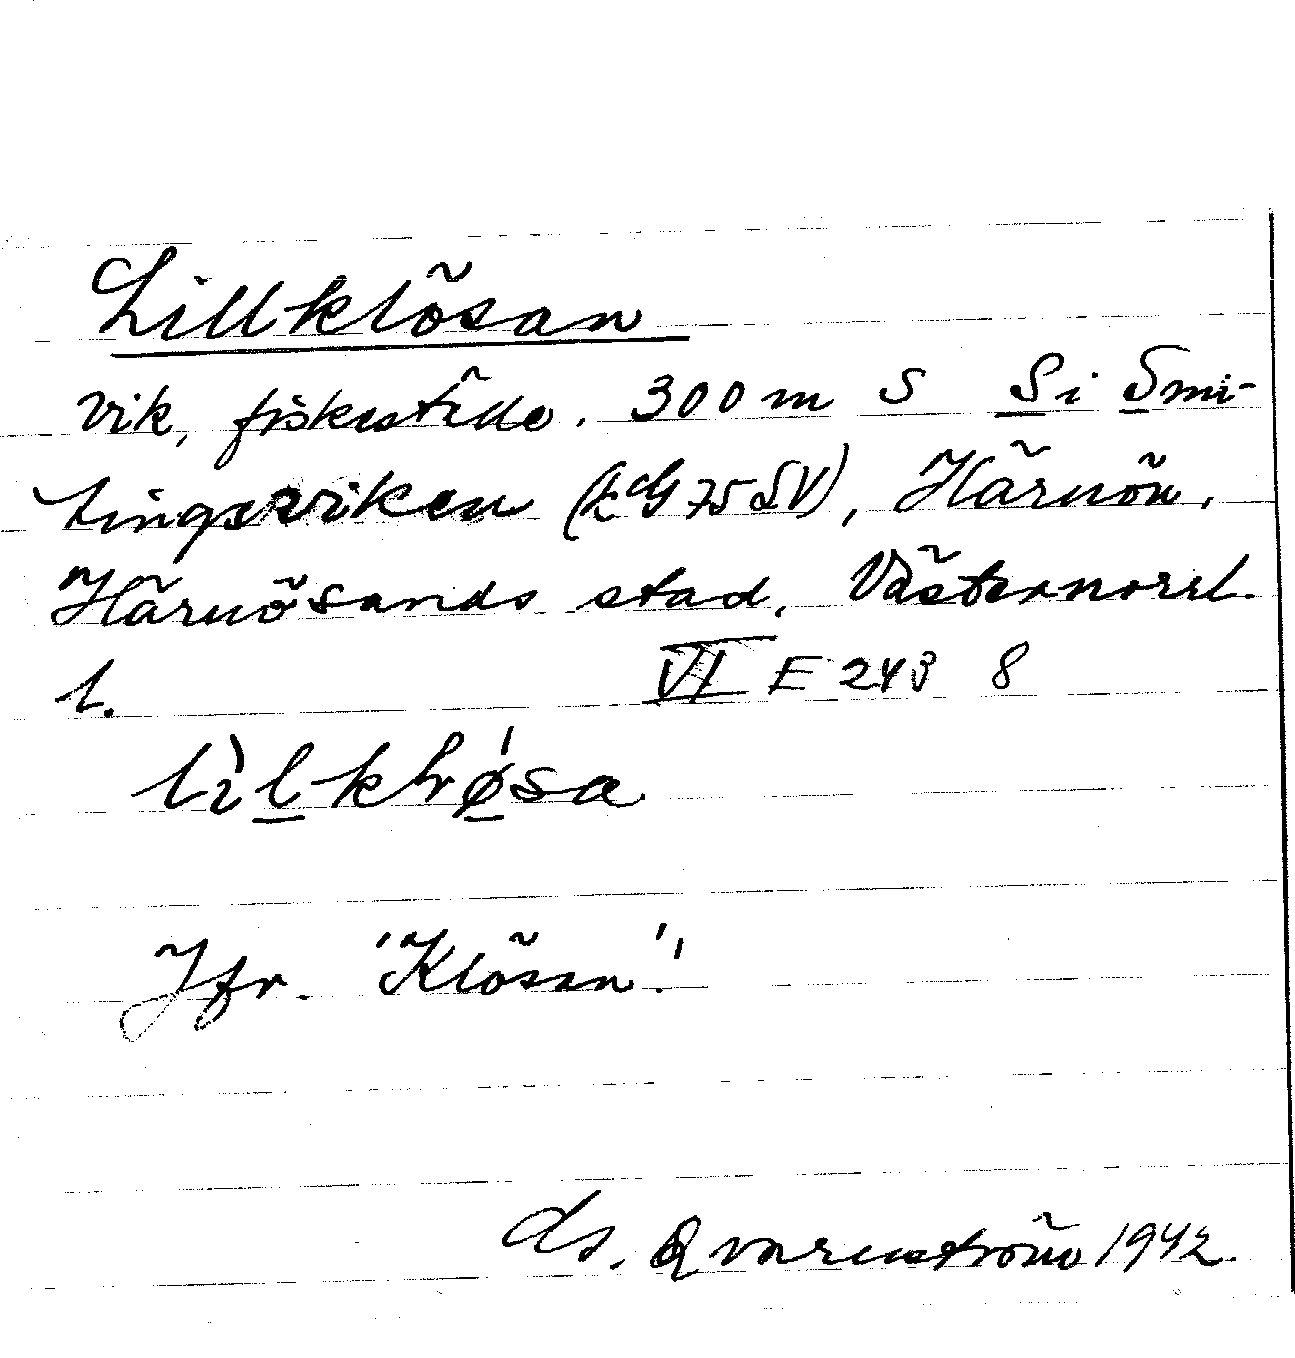 Lillklösan
vik, fiskeställe. 300 m S Si Smi-
tingsviken (75 SV), Härnön,
Härnösands stad, Västernorrl.
l.
VI E 243 8
lìlkløsa
Jfr. 'Klösan'.
Ls. Qvarnström 1942.